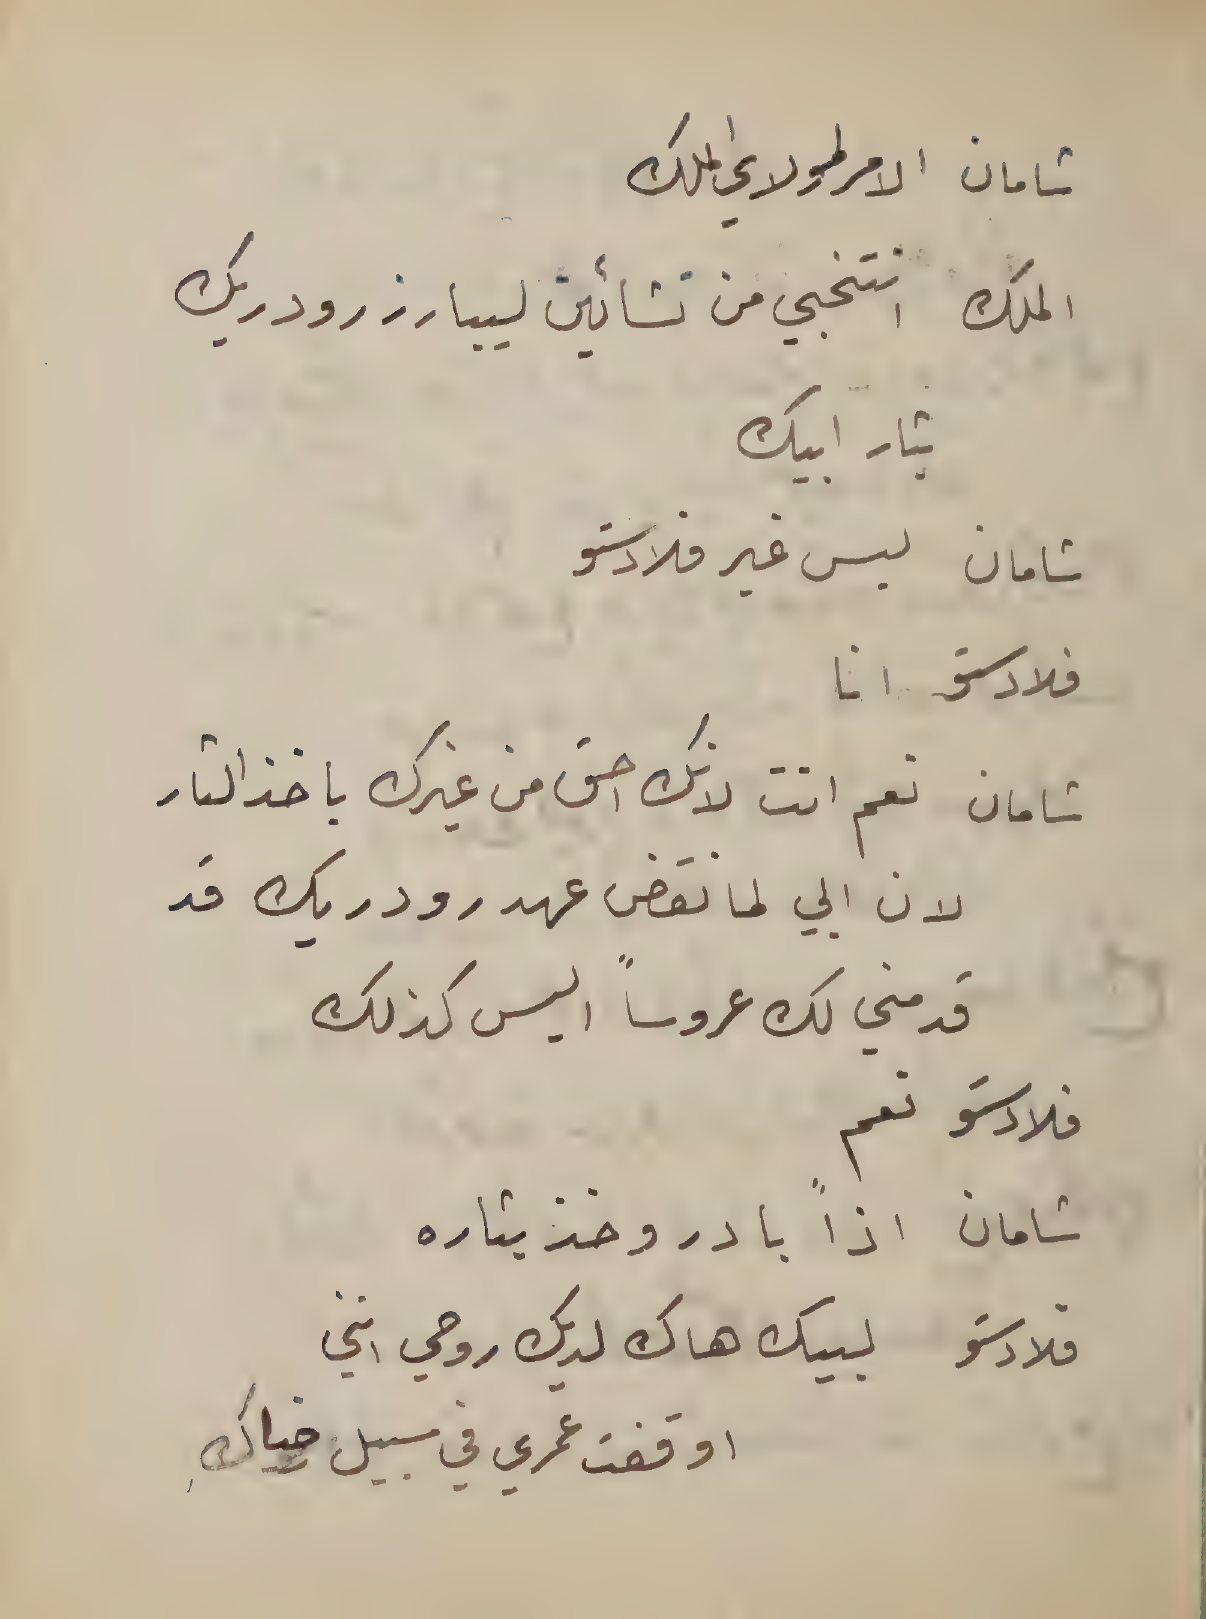 شامان الامر لمولاي الملك
الملك انتخبي من تشائين ليبارز رودريك
بثار ابيك
شامان ليس غير فلادستو
فلادستو انا
شامان نعم انت لانك احق من غيرك باخذ الثار
لان ابي لما نقض عهد رودريك قد
قدمني لك عروساً اليس كذلك
فلادستو نعم
شامان اذاً بادر وخذ بثاره
فلادستو لبيك هاك لديك روحي انني
اوقفت عمري في سبيل